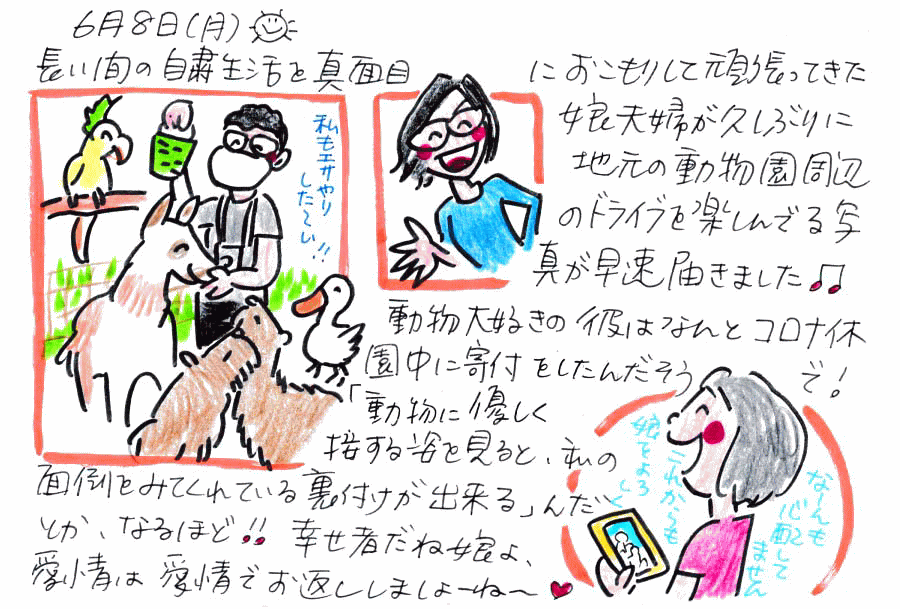 6月8日(月)
長い間の自粛生活を真面目
におこもりして頑張ってきた
娘夫婦が久しぶりに
地元の動物園周辺
のドライブを楽しんでる写
真が早速届きました♫
私もエサやり
したーい!!
動物大好きの彼はなんとコロナ休
園中に寄付をしたんだそうで!
「動物に優しく
接する姿を見ると、私の
面倒をみてくれている裏付けが出来る」んだ
とか、なるほど!! 幸せ者だね娘よ、
愛情は愛情でお返ししましょーね〜♥
なーんも
心配して
ません
これからも
娘をよろしく